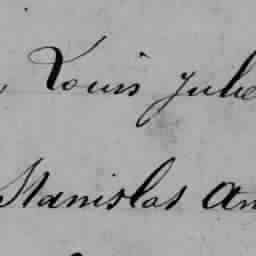 Louis Jule
Stanislas An